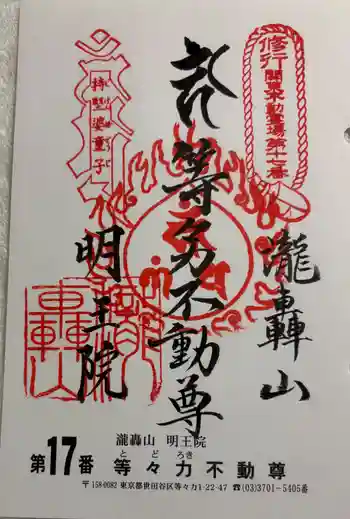 修行関東不動霊場第十七番
奉拝
等々力不動尊
瀧轟山
明王院
瀧轟山 明王院
とどろき
第17番 等々力不動尊
〒158-0082 東京都世田谷区等々力1-22-47 ☎(03)3701-5405番